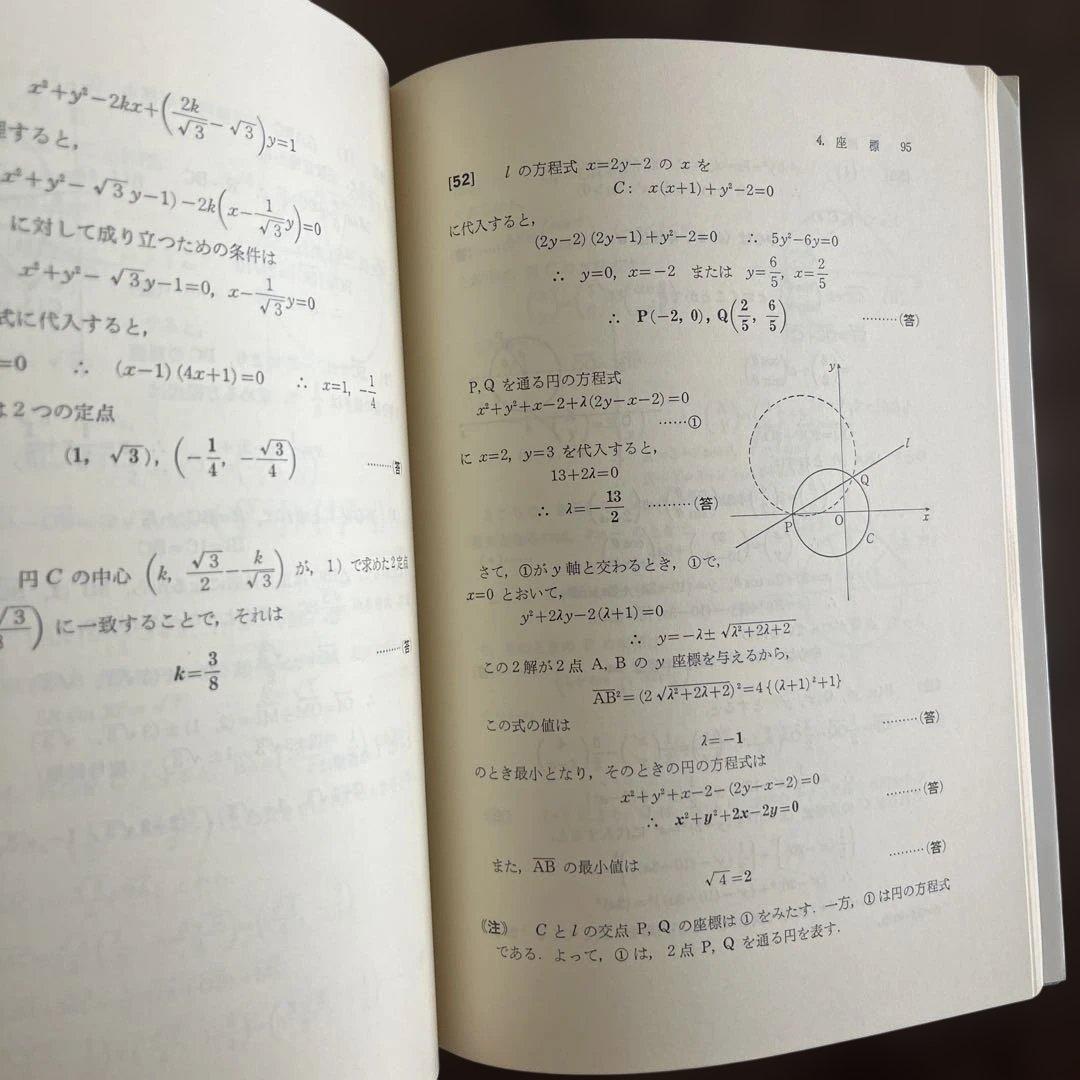 x²+y²−2kx+(2k/√3−√3)y=1
すると，
x²+y²−√3y−1)−2k(x−1/√3 y)=0
に対して成り立つための条件は
x²+y²−√3y−1=0, x−1/√3 y=0
式に代入すると，
=0 ∴ (x−1)(4x+1)=0 ∴ x=1, −1/4
は2つの定点
(1, √3), (−1/4, −√3/4) ………(答)
円 C の中心 (k, √3/2−k/√3) が，1) で求めた2定点
に一致することで，それは
k=3/8 ………(答)
4. 座 標 95
[52] l の方程式 x=2y−2 の x を
C: x(x+1)+y²−2=0
に代入すると，
(2y−2)(2y−1)+y²−2=0 ∴ 5y²−6y=0
∴ y=0, x=−2 または y=6/5, x=2/5
∴ P(−2, 0), Q(2/5, 6/5) ………(答)
P, Q を通る円の方程式
x²+y²+x−2+λ(2y−x−2)=0
……①
に x=2, y=3 を代入すると，
13+2λ=0
∴ λ=−13/2 ………(答)
y
l
Q
P
O
x
C
さて，①が y 軸と交わるとき，①で，
x=0 とおいて，
y²+2λy−2(λ+1)=0
∴ y=−λ±√λ²+2λ+2
この2解が2点 A, B の y 座標を与えるから，
A̅B̅²=(2√λ²+2λ+2)²=4{(λ+1)²+1}
この式の値は
λ=−1 ………(答)
のとき最小となり，そのときの円の方程式は
x²+y²+x−2−(2y−x−2)=0
∴ x²+y²+2x−2y=0 ………(答)
また，A̅B̅ の最小値は
√4=2 ………(答)
《注》 C と l の交点 P, Q の座標は①をみたす．一方，①は円の方程式
である．よって，①は，2点 P, Q を通る円を表す．